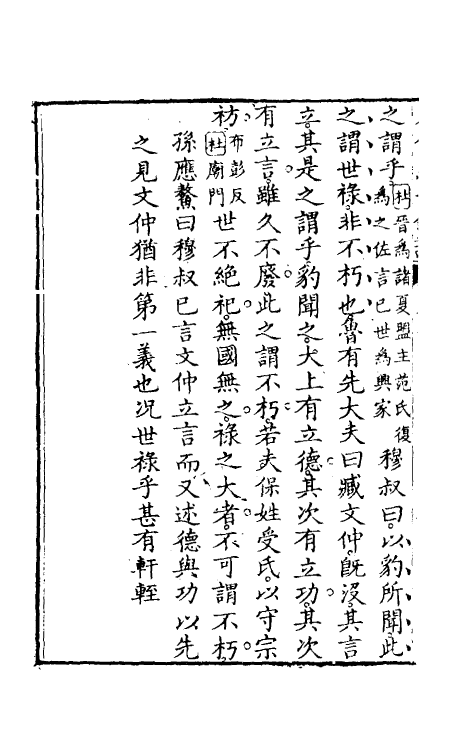 之謂乎杜晉爲諸夏盟主范氏復爲之佐言已世爲興家穆叔曰以豹所聞此
之謂世祿非不朽也魯有先大夫曰臧文仲旣沒其言
立其是之謂乎豹聞之大上有立德其次有立功其次
有立言雖久不廢此之謂不朽若夫保姓受氏以守宗
祊布彭反杜廟門世不絕祀無國無之祿之大者不可謂不朽
孫應鰲曰穆叔已言文仲立言而又述德與功以先
之見文仲猶非第一義也况世祿乎甚有軒輊